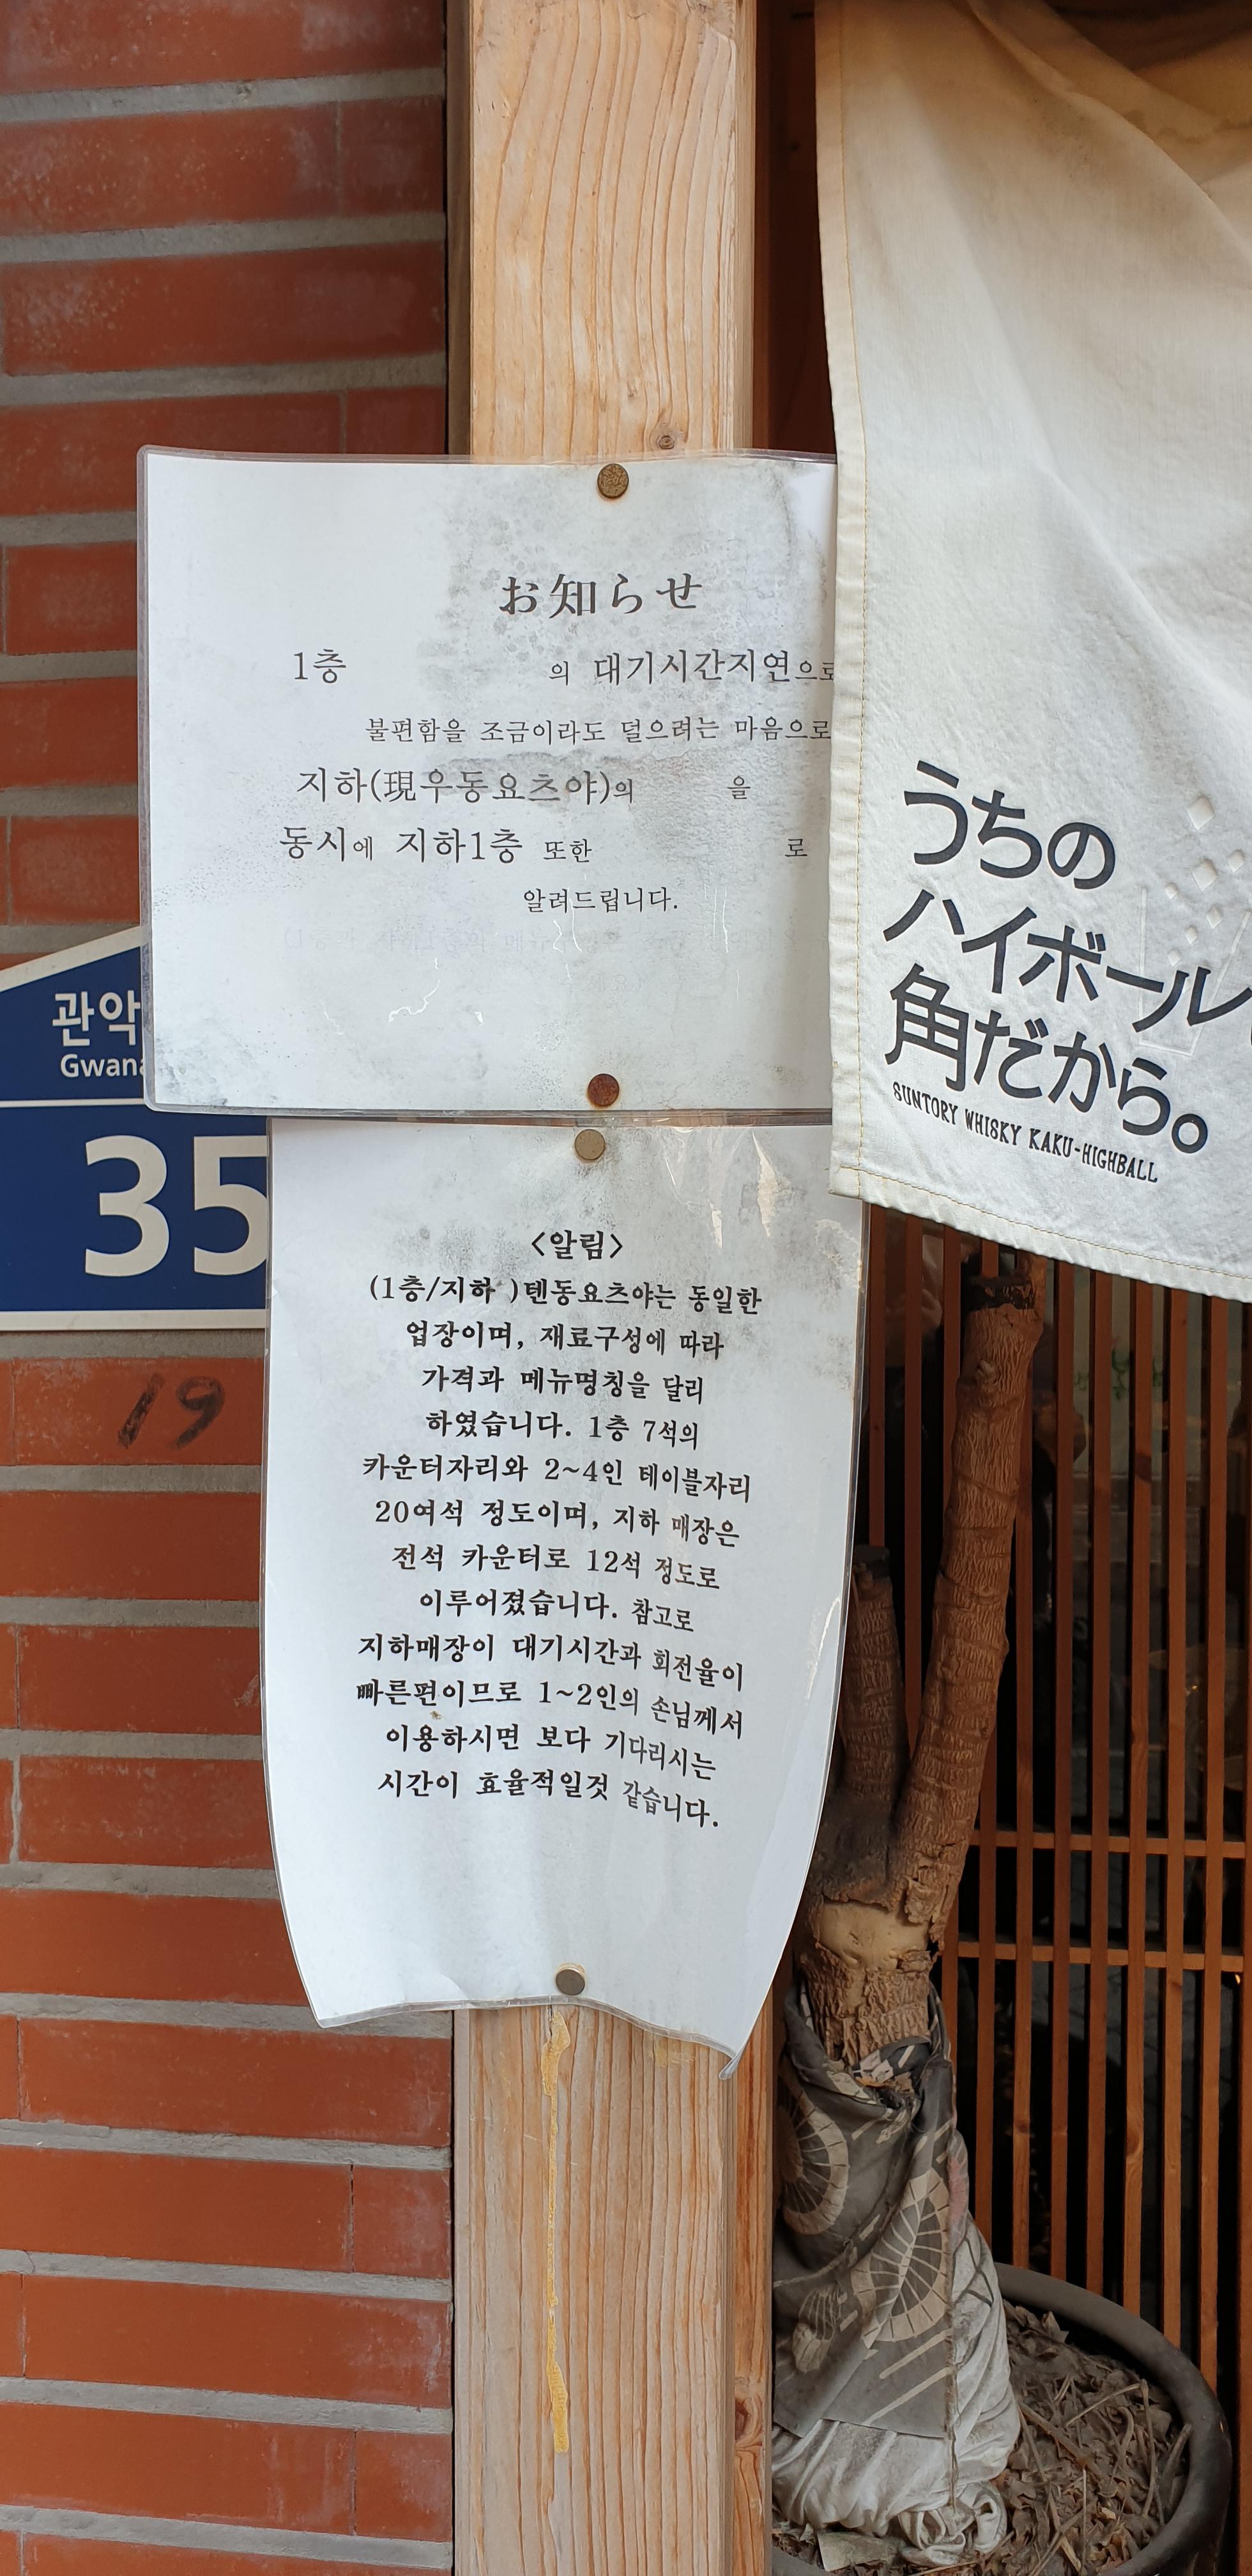 お知らせ
1층 의 대기시간지연으로
불편함을 조금이라도 덜으려는 마음으로
지하(現우동요츠야)의 을
동시에 지하1층 또한 로
알려드립니다.
관악
35
19
<알림>
(1층/지하 )텐동요츠야는 동일한
업장이며, 재료구성에 따라
가격과 메뉴명칭을 달리
하였습니다. 1층 7석의
카운터자리와 2~4인 테이블자리
20여석 정도이며, 지하 매장은
전석 카운터로 12석 정도로
이루어졌습니다. 참고로
지하매장이 대기시간과 회전율이
빠른편이므로 1~2인의 손님께서
이용하시면 보다 기다리시는
시간이 효율적일것 같습니다.
うちの
ハイボール
角だから。
SUNTORY WHISKY KAKU-HIGHBALL